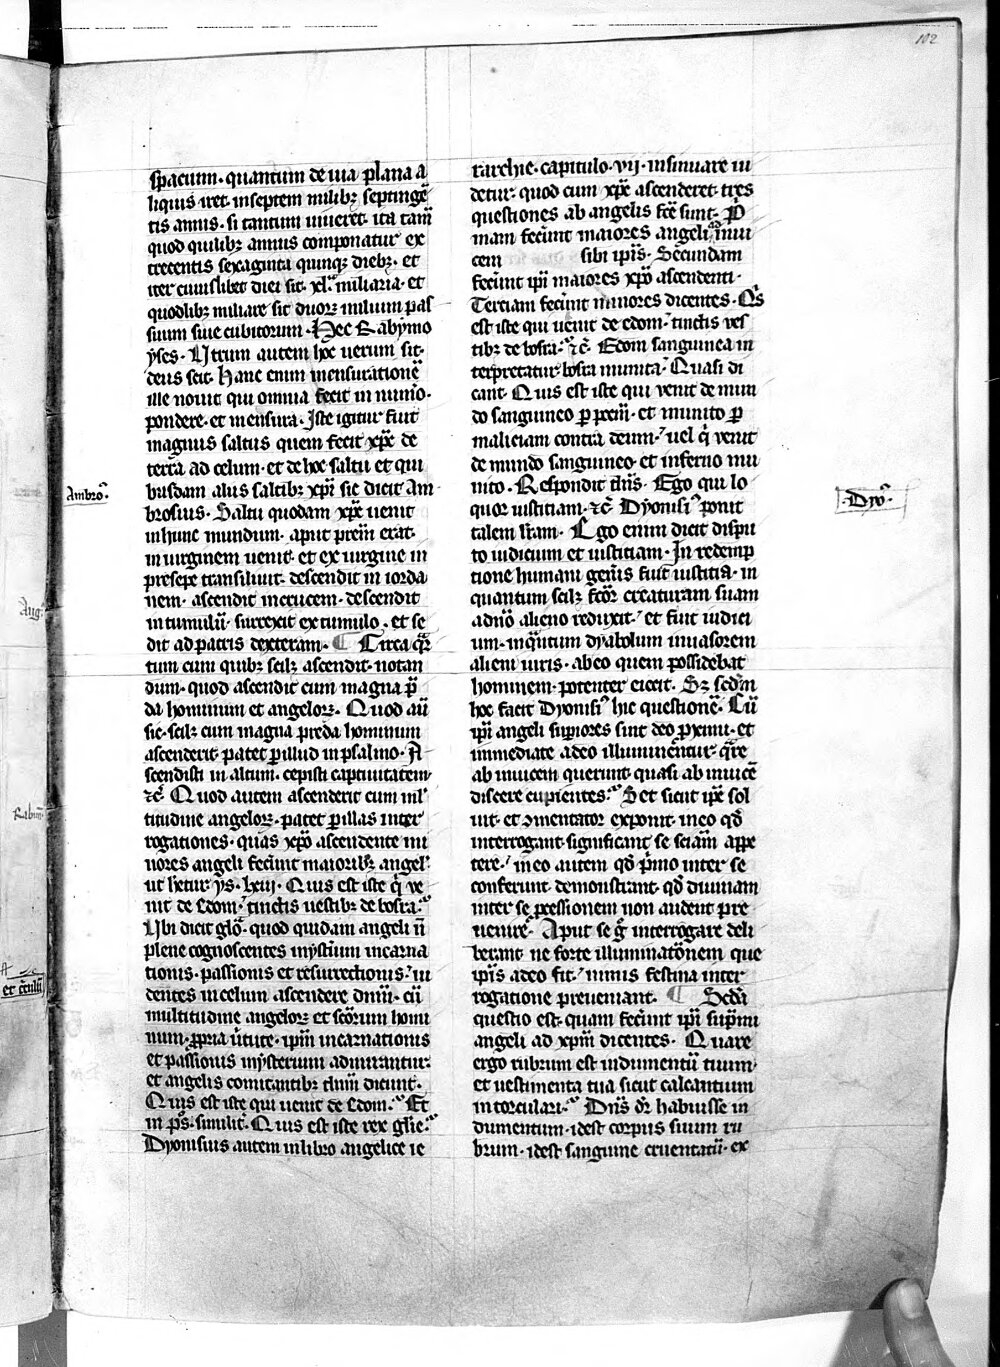 102
spacium · quantum de uia plana a
liquis iret in septem milibꝫ septingē
tis annis · si tantum uiueret · ita tam̄
quod quilibꝫ annus componatur ex
trecentis sexaginta quinqꝫ diebꝫ · et
iter cuiuslibet diei sit · xl · miliaria · et
quodlibꝫ miliare sit duorꝫ milium pas
suum siue cubitorum · Hec Rabymo
yses · Utrum autem hoc uerum sit ·
deus scit · Hanc enim mensurationē
ille nouit qui omnia fecit in nūo ·
pondere · et mensura · Iste igitur fuit
magnus saltus quem fecit xp̄c de
terra ad celum · et de hoc saltu et qui
busdam aliis saltibꝫ xp̄i sic dicit Am
Ambro᷒ ·
brosius · Saltu quodam xp̄c uenit
in hunc mundum · aput prēm erat ·
in uirginem uenit · et ex uirgine in
presepe transiliuit · descendit in iorda
nem · ascendit in crucem · descendit
in tumulū · surrexit ex tumulo · et se
dit ad patris dexteram · ¶ Circa q̄r
tum cum quibꝫ scilꝫ ascendit · notan
dum · quod ascendit cum magna p̄
da hominum et angelorꝫ · Quod aū
sic · scilꝫ cum magna preda hominum
ascenderit patet per illud in psalmo · A
scendisti in altum · cepisti captiuitatem ·
⁊c̄ · Quod autem ascenderit cum ml̄
titudine angelorꝫ · patet per illas inter
rogationes · quas xp̄o ascendente mi
nores angeli fecerunt maioribꝫ angel᷒
ut h̄etur ys · lxiii · Quis est iste q̄ ve
nit de Edom · tinctis uestibꝫ de bosra ·
Ubi dicit glo᷒ · quod quidam angeli n̄
plene cognoscentes mysterium incarna
tionis · passionis et resurrectionis · ui
dentes in celum ascendere dn̄m · cū
multitudine angelorꝫ et sc̄orum homi
num · ꝓpria uirtute · ip̄m incarnationis
et passionis mysterium admirantur ·
et angelis comitantibꝫ dn̄m dicunt ·
Quis est iste qui uenit de Edom · Et
in ps̄ · simil᷒ · Quis est iste rex glīe ·
Dyonisius autem in libro angelice ie
rarchie · capitulo · vij · insinuare ui
detur · quod cum xp̄c ascenderet · tres
questiones ab angelis fc̄e sunt · P̄
mam fecerunt maiores angeli inui
cem sibi ip̄is · Secundam
fecerunt ip̄i maiores xp̄o ascendenti ·
Terciam fecerunt minores dicentes · Qis
est iste qui uenit de edom · tinctis ves
tibꝫ de bosra · ⁊c̄ · Edom sanguinea in
terpretatur · bosra munita · Quasi di
cant · Quis est iste qui venit de mun
do sanguineo ꝑ pccm̄ · et munito ꝑ
maliciam contra deum · uel q̄ venit
de mundo sanguineo · et inferno mu
nito · Respondit dn̄s · Ego qui lo
quor iustitiam · ⁊c̄ · Dyonisi᷒ ponit
· Dyo᷒ ·
talem lr̄am · Ego enim dicit dispu
to iudicium et iustitiam · In redemp
tione humani gen̄is fuit iustitia · in
quantum scilꝫ creator creaturam suam
a dn̄o alieno reduxit · et fuit iudici
um · inqntum dyabolum inuasorem
alieni iuris · ab eo quem possidebat
hominem · potenter eiecit · Sꝫ scdm̄
hoc facit Dyonisi᷒ hic questionē · Cū
ip̄i angeli superiores sint deo proximi · et
immediate a deo illuminentur · q̄re
ab inuicem querunt quasi ab inuicē
discere cupientes · Set sicut ip̄e sol
uit · et ɔmentator exponit · in eo qd̄
interrogant · significant se sciām appe
tere · in eo autem qd̄ p̄mo inter se
conferunt · demonstrant · qd̄ diuinam
inter se ꝓcessionem non audent pre
uenire · Aput se g̊ interrogare deli
berant · ne forte illuminationem que
ip̄is a deo fit · nimis festina inter
rogatione preueniant · ¶ Scd̄a
questio est · quam fecerunt ip̄i sup̄mi
angeli ad xp̄m dicentes · Quare
ergo rubrum est indumentū tuum ·
et uestimenta tua sicut calcantium
in torculari · Dn̄s dr̄ habuisse in
dumentum · idest corpus suum ru
brum · idest sanguine cruentatū · ex